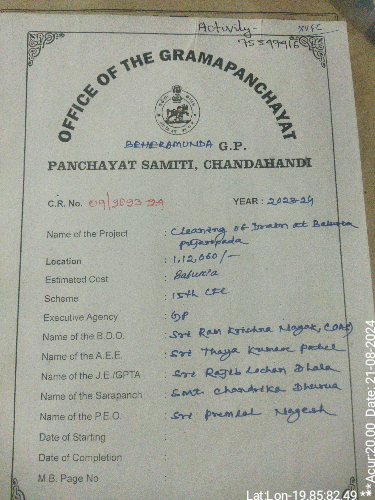 Activity- XVFC
75397916
OFFICE OF THE GRAMAPANCHAYAT
BEHERAMUNDA G.P.
PANCHAYAT SAMITI, CHANDAHANDI
C.R. No. 09/2023-24 YEAR : 2023-24
Name of the Project : Cleaning of Drain at Baburia
pujaripada
Location : 1,12,060/-
Estimated Cost : Baburia
Scheme : 15th CFC
Executive Agency : GP
Name of the B.D.O. : Sri Ram Krishna Nayak, (OAS)
Name of the A.E.E. : Sri Thaya Kumar Patel
Name of the J.E./GPTA : Sri Rajib Lochan Dhala
Name of the Sarapanch : Smt. Chandrika Dharua
Name of the P.E.O. : Sri Premlal Nagesh
Date of Starting :
Date of Completion :
M.B. Page No. :
Lat:Lon-19.85:82.49 *** Acur:20.00 Date: 21-08-2024